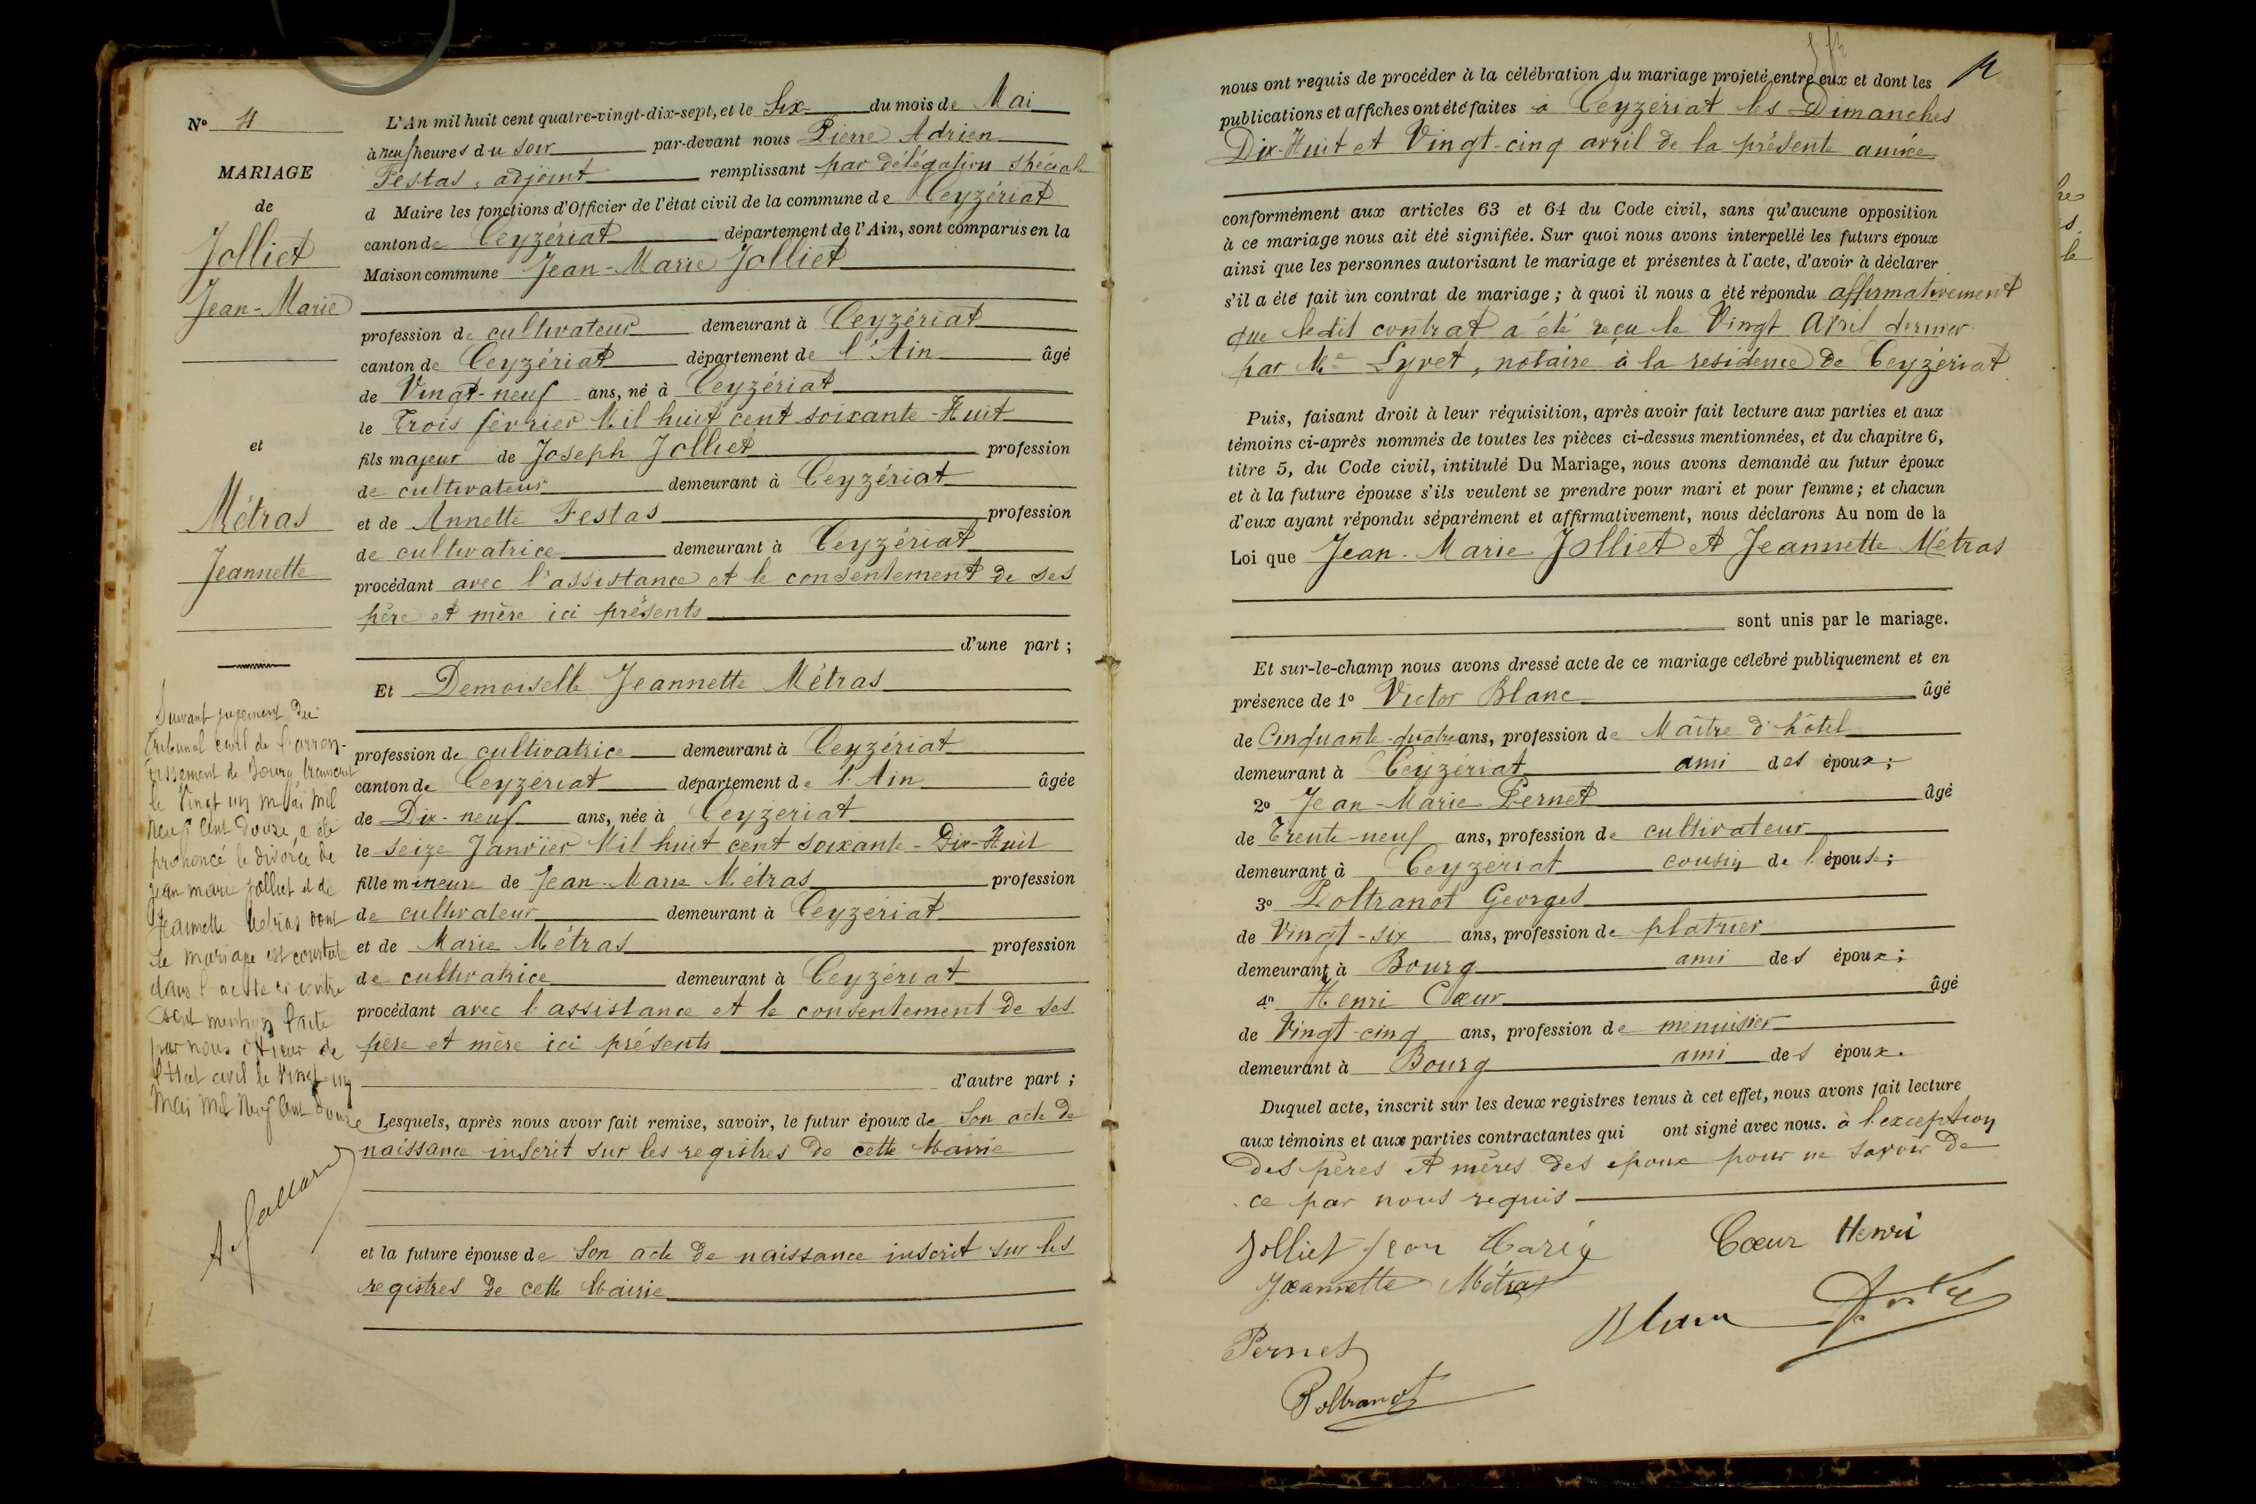 N° 4
MARIAGE
de
Jolliet
Jean-Marie
et
Métras
Jeannette
Suivant jugement du
Tribunal civil de l'arron-
dissement de Bourg
le Vingt un mai mil
neuf cent douze, a été
prononcé le divorce de
Jean marie Jolliet et de
Jeannette Métras dont
le mariage est constaté
dans l'acte ci contre
mention faite
par nous officier de
l'Etat civil le Vingt-un
Mai mil neuf cent douze
L'An mil huit cent quatre-vingt-dix-sept, et le Six du mois de Mai
à neuf heures du soir par-devant nous Pierre Adrien
Festas, adjoint remplissant par délégation spéciale
d Maire les fonctions d'Officier de l'état civil de la commune de Ceyzériat
canton de Ceyzériat département de l'Ain, sont comparus en la
Maison commune Jean-Marie Jolliet
profession de cultivateur demeurant à Ceyzériat
canton de Ceyzériat département de l'Ain âgé
de Vingt-neuf ans, né à Ceyzériat
le Trois février Mil huit cent soixante-Huit
fils majeur de Joseph Jolliet profession
de cultivateur demeurant à Ceyzériat
et de Annette Festas profession
de cultivatrice demeurant à Ceyzériat
procédant avec l'assistance et le consentement de ses
père et mère ici présents
d'une part ;
Et Demoiselle Jeannette Métras
profession de cultivatrice demeurant à Ceyzériat
canton de Ceyzériat département de l'Ain âgée
de Dix-neuf ans, née à Ceyzériat
le seize Janvier Mil huit cent soixante-Dix-Huit
fille mineure de Jean-Marie Métras profession
de cultivateur demeurant à Ceyzériat
et de Marie Métras profession
de cultivatrice demeurant à Ceyzériat
procédant avec l'assistance et le consentement de ses
père et mère ici présents
d'autre part ;
Lesquels, après nous avoir fait remise, savoir, le futur époux de Son acte de
naissance inscrit sur les registres de cette Mairie
et la future épouse de Son acte de naissance inscrit sur les
registres de cette Mairie
nous ont requis de procéder à la célébration du mariage projeté entre eux et dont les
publications et affiches ont été faites à Ceyzériat les Dimanches
Dix-Huit et Vingt-cinq avril de la présente année
conformément aux articles 63 et 64 du Code civil, sans qu'aucune opposition
à ce mariage nous ait été signifiée. Sur quoi nous avons interpellé les futurs époux
ainsi que les personnes autorisant le mariage et présentes à l'acte, d'avoir à déclarer
s'il a été fait un contrat de mariage ; à quoi il nous a été répondu affirmativement
que ledit contrat a été reçu le Vingt Avril dernier
par Me Lyvet, notaire à la residence de Ceyzériat
Puis, faisant droit à leur réquisition, après avoir fait lecture aux parties et aux
témoins ci-après nommés de toutes les pièces ci-dessus mentionnées, et du chapitre 6,
titre 5, du Code civil, intitulé Du Mariage, nous avons demandé au futur époux
et à la future épouse s'ils veulent se prendre pour mari et pour femme ; et chacun
d'eux ayant répondu séparément et affirmativement, nous déclarons Au nom de la
Loi que Jean-Marie Jolliet et Jeannette Métras
sont unis par le mariage.
Et sur-le-champ nous avons dressé acte de ce mariage célébré publiquement et en
présence de 1° Victor Blanc âgé
de Cinquante-quatre ans, profession de Maître d'hôtel
demeurant à Ceyzériat ami des époux ;
2° Jean-Marie Pernet âgé
de Trente-neuf ans, profession de cultivateur
demeurant à Ceyzériat cousin de l'épouse ;
3° Poltranot Georges
de Vingt-six ans, profession de platrier
demeurant à Bourg ami des époux ;
4° Henri Cœur âgé
de Vingt-cinq ans, profession de menuisier
demeurant à Bourg ami des époux.
Duquel acte, inscrit sur les deux registres tenus à cet effet, nous avons fait lecture
aux témoins et aux parties contractantes qui ont signé avec nous. à l'exception
des pères et mères des époux pour ne savoir de
ce par nous requis
Jolliet Jean Marie Cœur Henri
Jeannette Métras
Blanc
Pernet
Poltranot